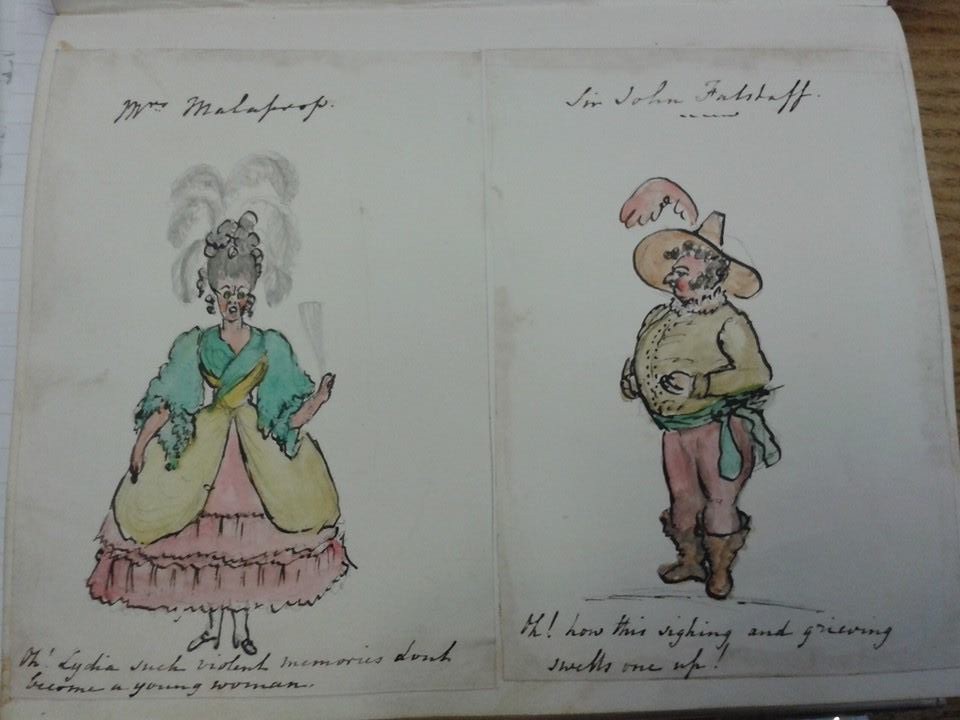 Mrs Malaprop.
Oh! Lydia such violent memories dont
become a young woman.
Sir John Falstaff.
Oh! how this sighing and grieving
swells one up!